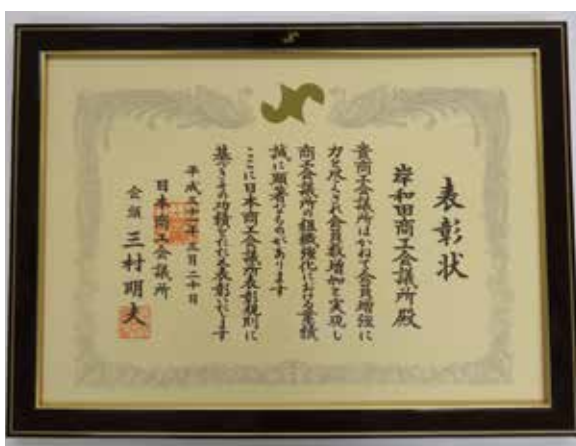 表彰状
岸和田商工会議所殿
貴商工会議所はかねて会員増強に
力を尽くされ会員数増加を実現し
商工会議所の組織強化における業績
誠に顕著なものがあります
ここに日本商工会議所表彰規則に
基づきその功績をたたえ表彰いたします
平成三十一年三月二十日
日本商工会議所
会頭 三村明夫